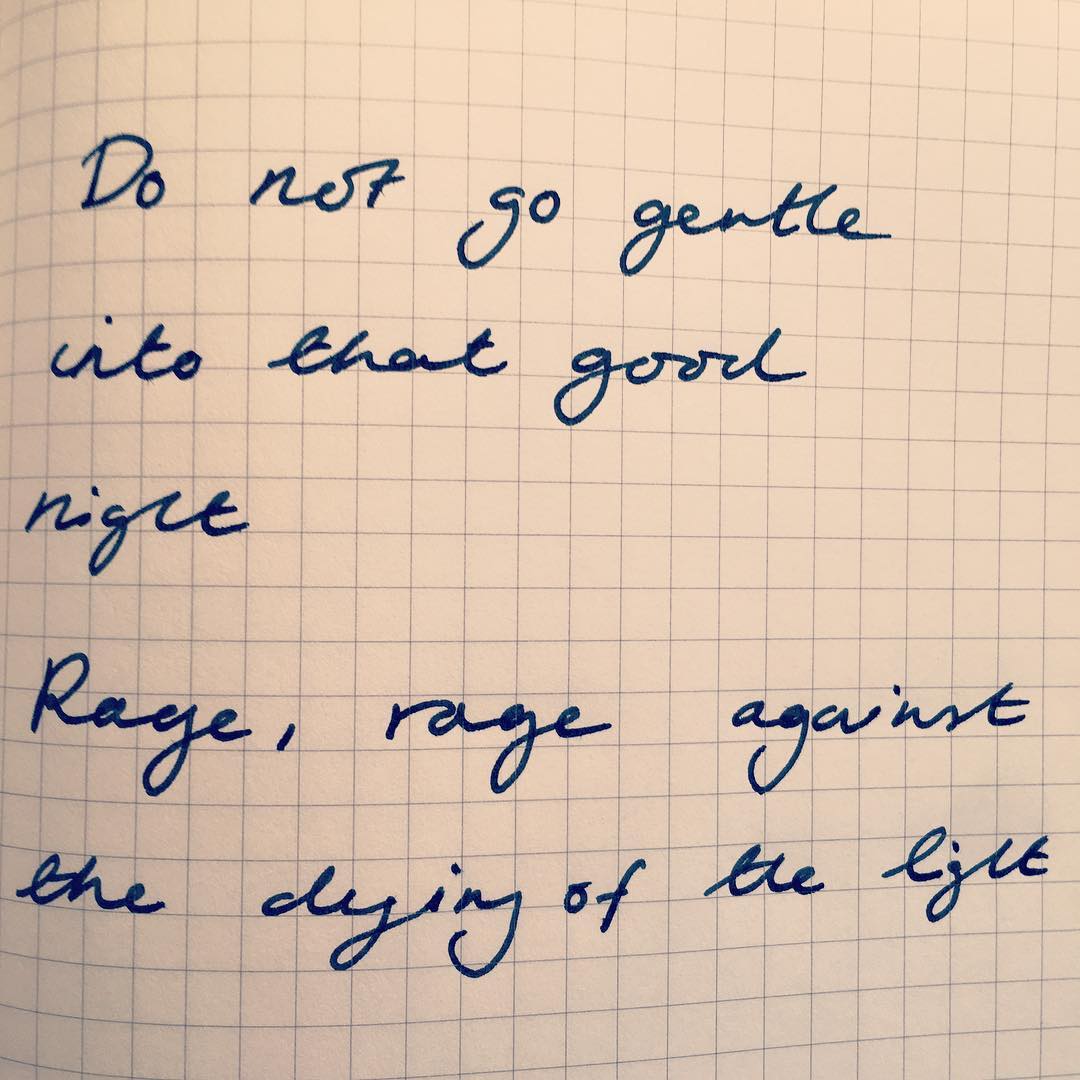 Do not go gentle
into that good
night
Rage, rage against
the dying of the light